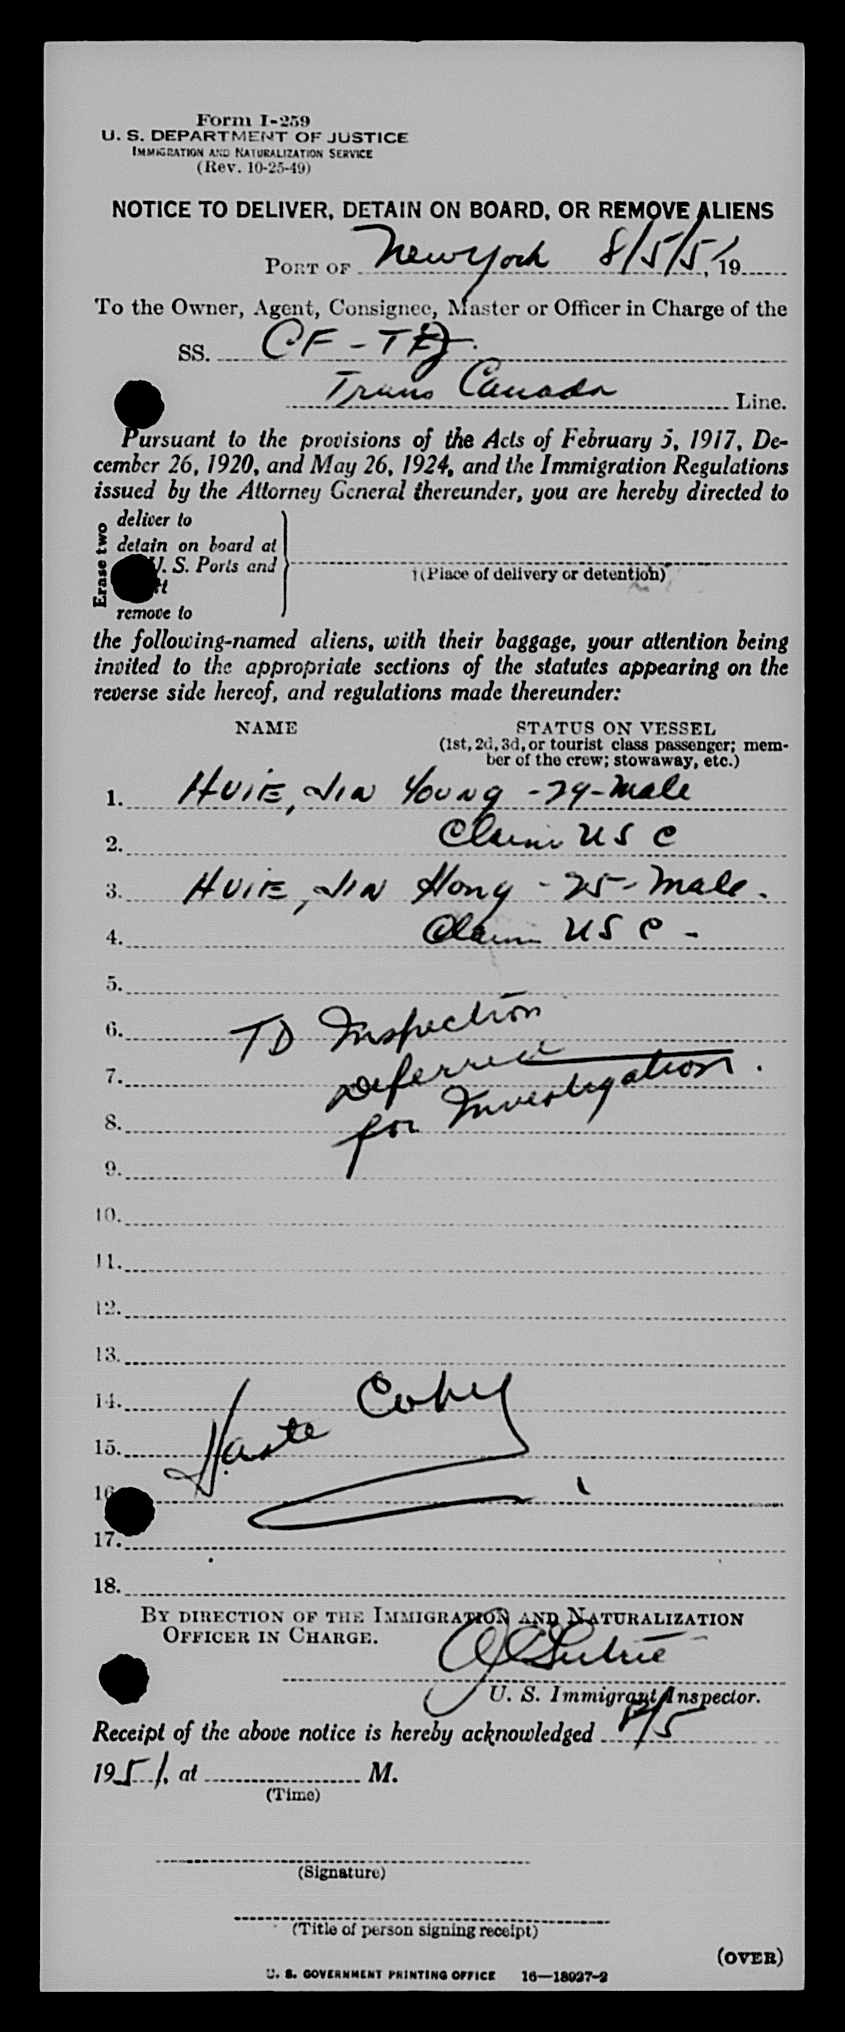 Form I-259
U. S. DEPARTMENT OF JUSTICE
IMMIGRATION AND NATURALIZATION SERVICE
(Rev. 10-25-49)
NOTICE TO DELIVER, DETAIN ON BOARD, OR REMOVE ALIENS
PORT OF New York 8/5/51, 19
To the Owner, Agent, Consignee, Master or Officer in Charge of the
SS. CF-
Trans Canada Line.
Pursuant to the provisions of the Acts of February 5, 1917, De-
cember 26, 1920, and May 26, 1924, and the Immigration Regulations
issued by the Attorney General thereunder, you are hereby directed to
Erase two
deliver to
detain on board at
U. S. Ports and
remove to
(Place of delivery or detention)
the following-named aliens, with their baggage, your attention being
invited to the appropriate sections of the statutes appearing on the
reverse side hereof, and regulations made thereunder:
NAME STATUS ON VESSEL
(1st, 2d, 3d, or tourist class passenger; mem-
ber of the crew; stowaway, etc.)
1. HUIE, JIN YOUNG - 29 - Male
2. Claim USC
3. HUIE, JIN Hong - 25 - Male.
4. Claim USC -
5.
6. TD Inspection
7. Deferred
8. for Investigation.
9.
10.
11.
12.
13.
14. Copy
15.
16.
17.
18.
BY DIRECTION OF THE IMMIGRATION AND NATURALIZATION
OFFICER IN CHARGE.
U. S. Immigrant Inspector.
Receipt of the above notice is hereby acknowledged 8/5
1951, at M.
(Time)
(Signature)
(Title of person signing receipt)
(OVER)
U. S. GOVERNMENT PRINTING OFFICE 16—18927-2